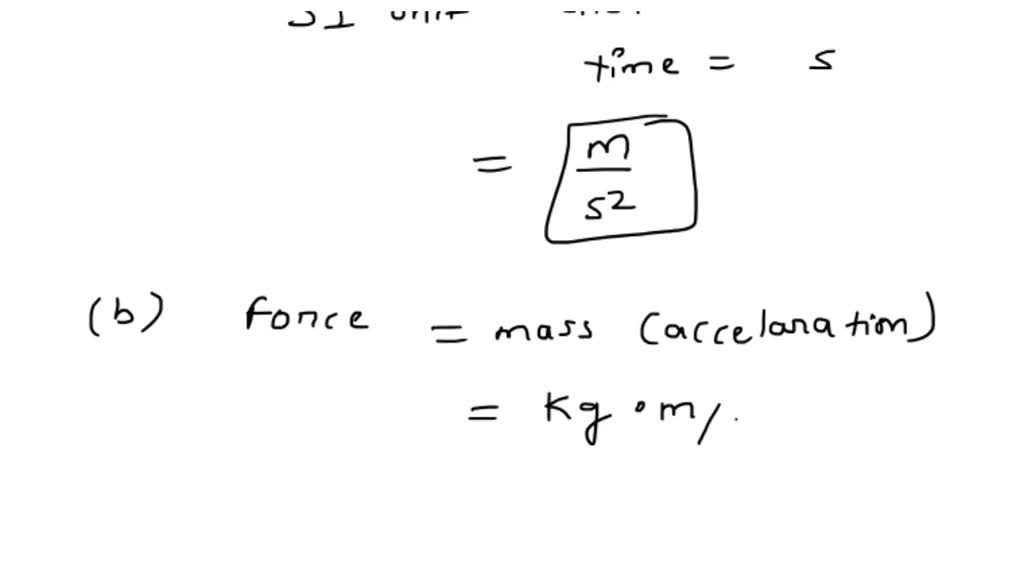 SI unit
time = s
= m/s²
(b) force = mass (accelaration)
= kg • m/